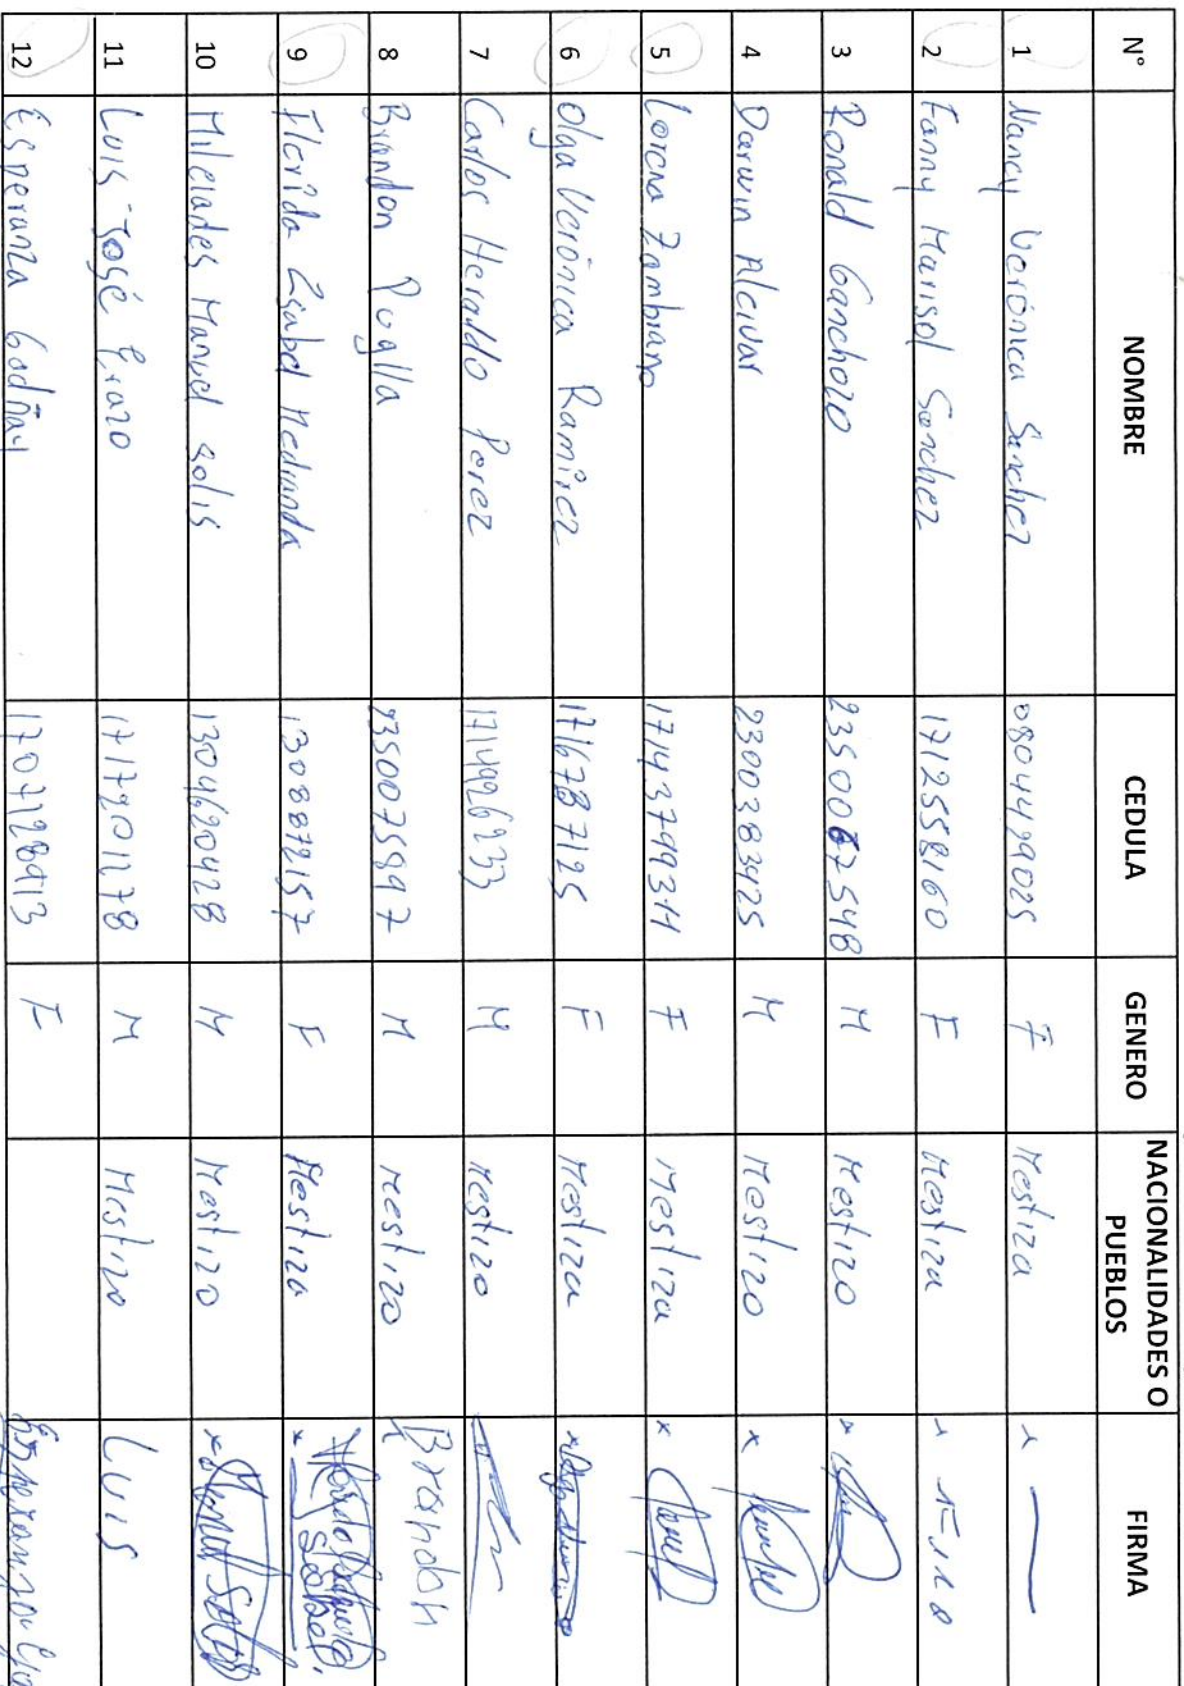 N° NOMBRE CEDULA GENERO NACIONALIDADES O PUEBLOS FIRMA
1 Nancy Verónica Sanchez 0804499025 F Mestiza x
2 Fanny Marisol Sanchez 1712558160 F Mestiza x
3 Ronald Ganchozo M Mestizo x
4 Darwin Alcivar 2300383425 M Mestizo x
5 Lorena Zambrano F Mestiza x
6 Olga Verónica Ramírez 1716787125 F Mestiza x
7 Carlos Heraldo Perez 1714926233 M Mestizo
8 Brandon Puglla M Mestizo Brandon
9 Florída Isabel Medranda 1308872157 F Mestiza x
10 Milciades Manuel Solis 1304620428 M Mestizo x
11 Luis José Erazo 1717201278 M Mestizo Luis
12 Esperanza 1707128913 F Esperanza